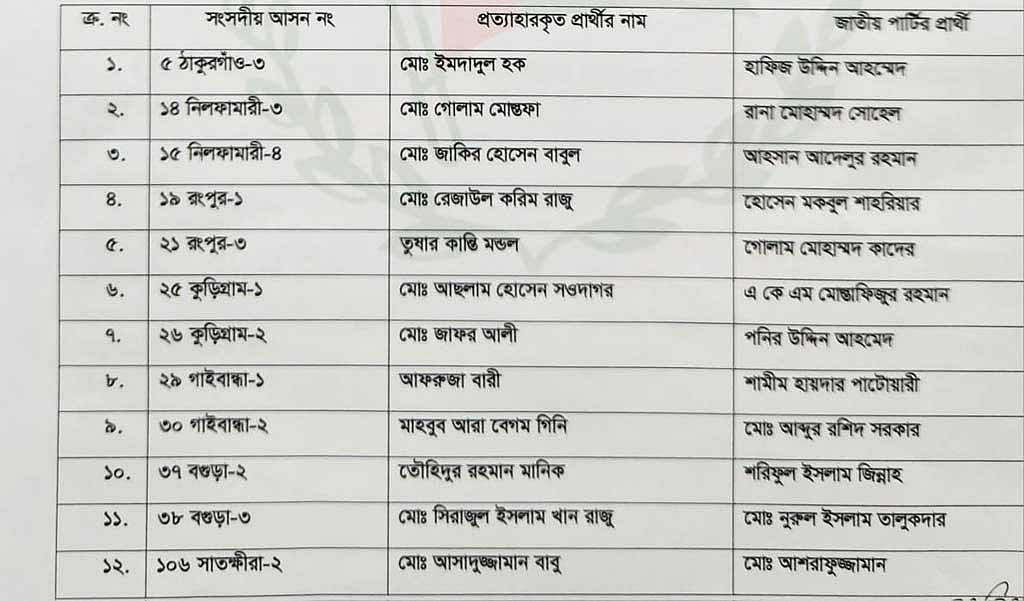 ক্র. নং সংসদীয় আসন নং প্রত্যাহারকৃত প্রার্থীর নাম জাতীয় পার্টির প্রার্থী
১. ৫ ঠাকুরগাঁও-৩ মোঃ ইমদাদুল হক হাফিজ উদ্দিন আহম্মেদ
২. ১৪ নিলফামারী-৩ মোঃ গোলাম মোস্তফা রানা মোহাম্মদ সোহেল
৩. ১৫ নিলফামারী-৪ মোঃ জাকির হোসেন বাবুল আহসান আদেলুর রহমান
৪. ১৯ রংপুর-১ মোঃ রেজাউল করিম রাজু হোসেন মকবুল শাহরিয়ার
৫. ২১ রংপুর-৩ তুষার কান্তি মন্ডল গোলাম মোহাম্মদ কাদের
৬. ২৫ কুড়িগ্রাম-১ মোঃ আছলাম হোসেন সওদাগর এ কে এম মোস্তাফিজুর রহমান
৭. ২৬ কুড়িগ্রাম-২ মোঃ জাফর আলী পনির উদ্দিন আহমেদ
৮. ২৯ গাইবান্ধা-১ আফরুজা বারী শামীম হায়দার পাটোয়ারী
৯. ৩০ গাইবান্ধা-২ মাহবুব আরা বেগম গিনি মোঃ আব্দুর রশিদ সরকার
১০. ৩৭ বগুড়া-২ তৌহিদুর রহমান মানিক শরিফুল ইসলাম জিন্নাহ
১১. ৩৮ বগুড়া-৩ মোঃ সিরাজুল ইসলাম খান রাজু মোঃ নুরুল ইসলাম তালুকদার
১২. ১০৬ সাতক্ষীরা-২ মোঃ আসাদুজ্জামান বাবু মোঃ আশরাফুজ্জামান